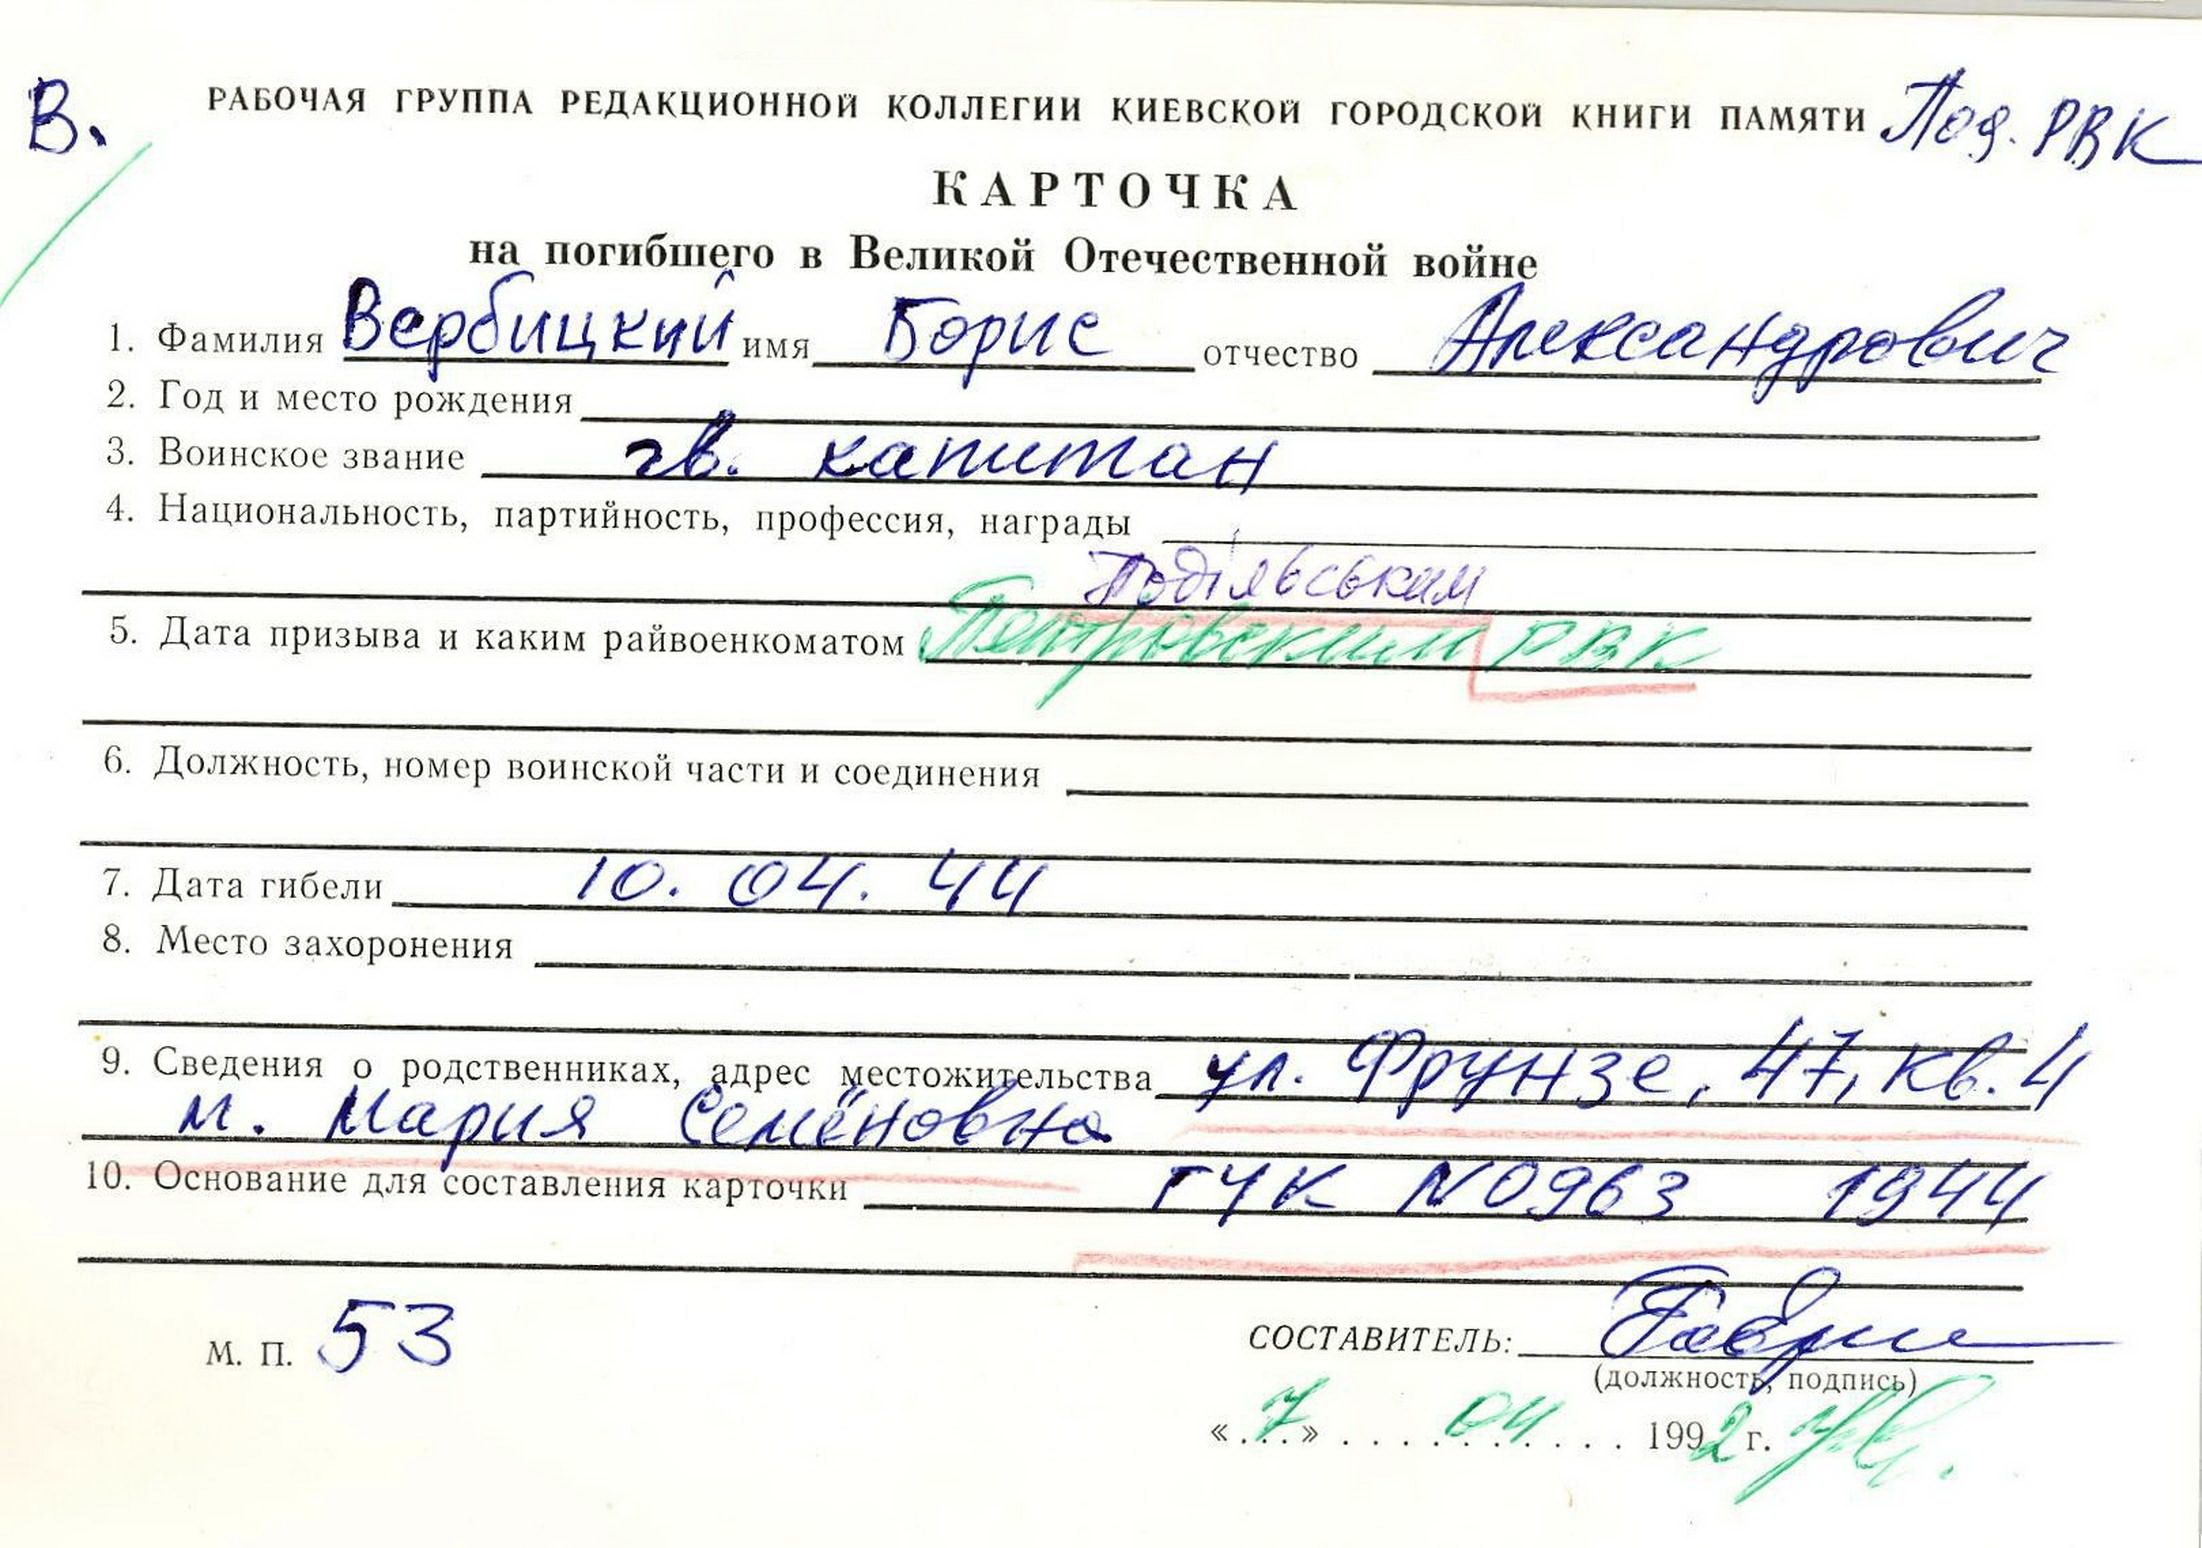 В. РАБОЧАЯ ГРУППА РЕДАКЦИОННОЙ КОЛЛЕГИИ КИЕВСКОЙ ГОРОДСКОЙ КНИГИ ПАМЯТИ Под. РВК
КАРТОЧКА
на погибшего в Великой Отечественной войне
1. Фамилия Вербицкий имя Борис отчество Александрович
2. Год и место рождения
3. Воинское звание гв. капитан
4. Национальность, партийность, профессия, награды
Подільським
5. Дата призыва и каким райвоенкоматом Петровским РВК
6. Должность, номер воинской части и соединения
7. Дата гибели 10. 04. 44
8. Место захоронения
9. Сведения о родственниках, адрес местожительства ул. Фрунзе, 47, кв. 4
м. Мария Семёновна
10. Основание для составления карточки ГУК N0963 1944
М. П. 53 СОСТАВИТЕЛЬ:
(должность, подпись)
«7» 04 1992 г.